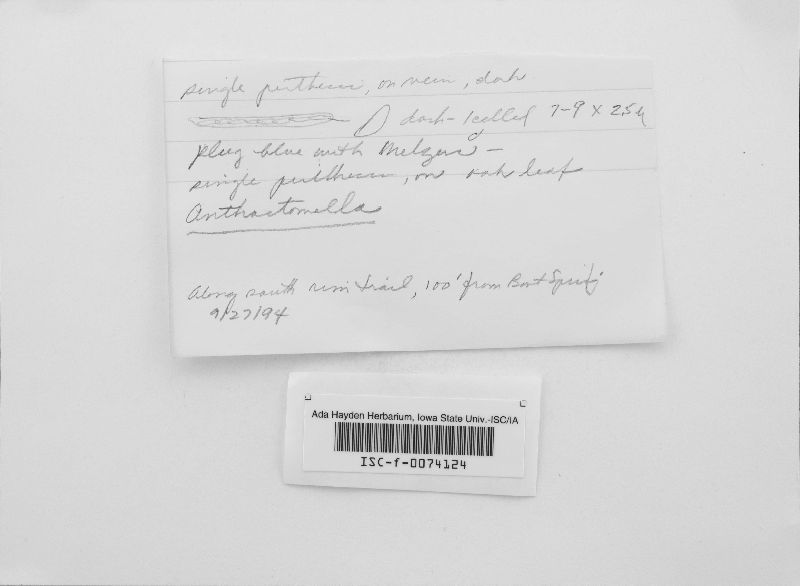 single perithecium, on vein, dark
dark-1celled 7-9 x 2.5 µ
plug blue with Melzers -
single perithecium, on oak leaf
Anthostomella
Along south rim trail, 100' from Boot Spring
9/27/94
Ada Hayden Herbarium, Iowa State Univ.-ISC/IA
ISC-f-0074124